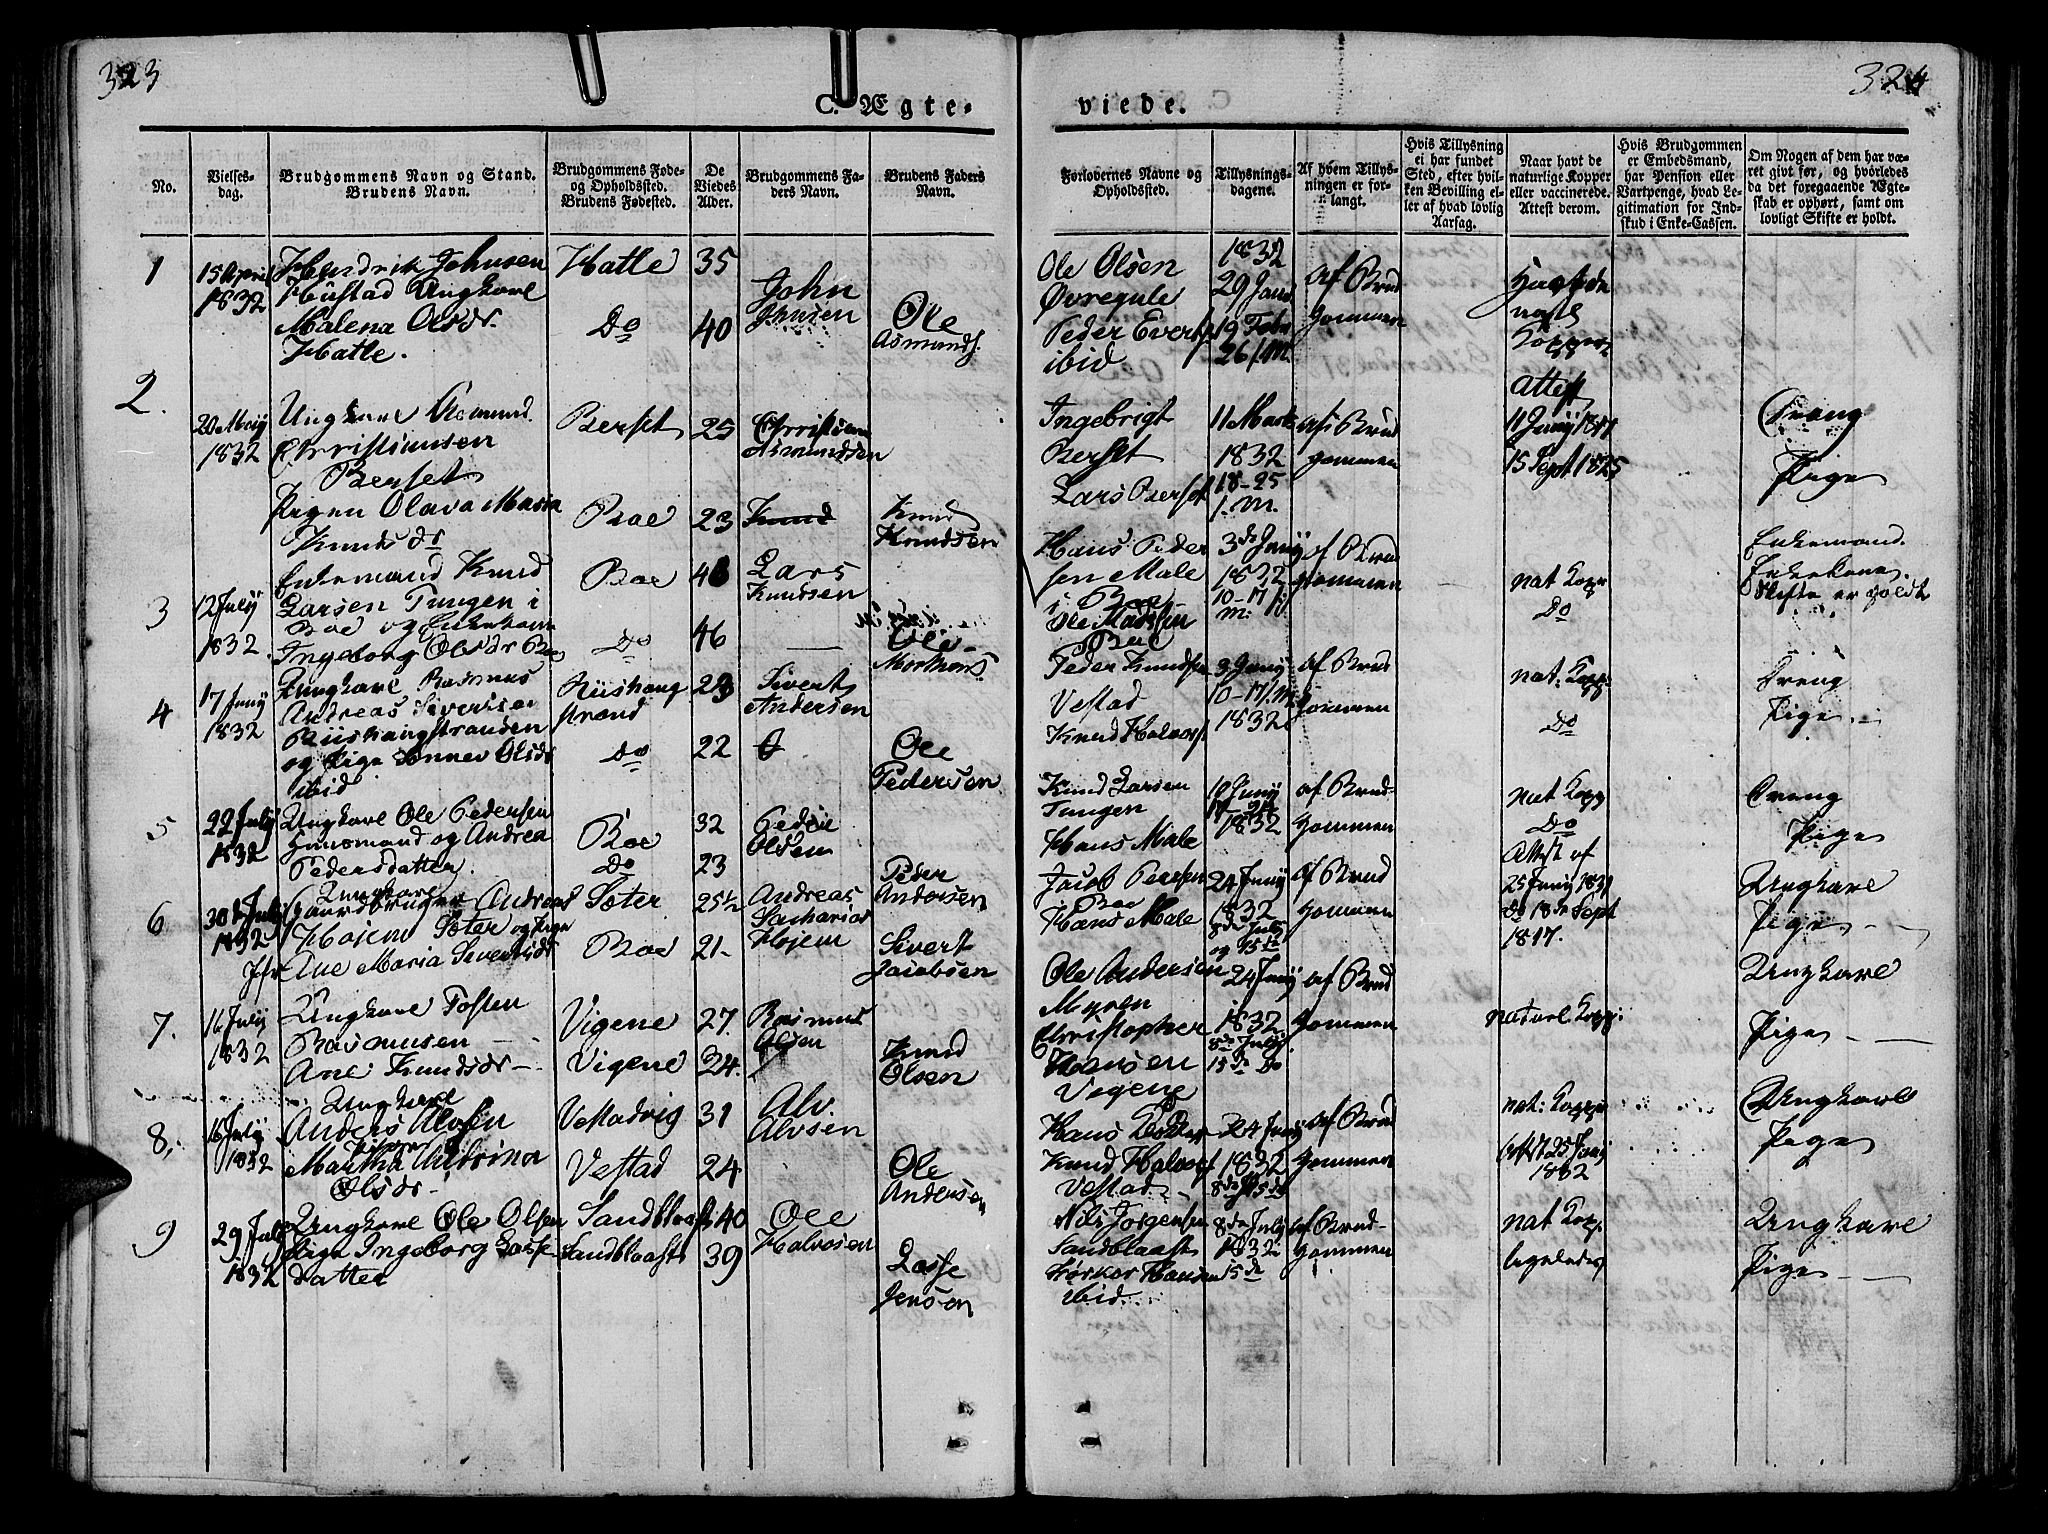 323
324
C. Ægte-
viede.
No.
Vielses-
dag.
Brudgommens Navn og Stand.
Brudens Navn.
Brudgommens Føde-
og Opholdssted.
Brudens Fødested.
De
Viedes
Alder.
Brudgommens Fa-
ders Navn.
Brudens Faders
Navn.
Forlovernes Navne og
Opholdsted.
Tillysnings-
dagene.
Af hvem Tillys-
ningen er for-
langt.
Hvis Tillysning
ei har fundet
Sted, efter hvil-
ken Bevilling el-
ler af hvad lovlig
Aarsag.
Naar havt de
naturlige Kopper
eller vaccinerede.
Attest derom.
Hvis Brudgommen
er Embedsmand,
har Pension eller
Vartpenge, hvad Le-
gitimation for Ind-
skud i Enke-Cassen.
Om Nogen af dem har væ-
ret givt før, og hvorledes
da det foregaaende Ægte-
skab er ophørt, samt om
lovligt Skifte er holdt.
1
15 April
1832
Hendrik Johnsen
Hustad Ungkarl
Malena Olsdr.
Hatle.
Hatle
Do
35
40
John
Johnsen
Ole
Asmunds.
Ole Olsen
Øvregule
Peder Evers
ibid
1832
29 Janu
19 Febr
26 / M.
af Brud
gommen
Kopper
2.
20 Maiy
1832
Ungkarl Asmund
Christiansen
Berset
Pigen Olava Maria
Knuds dr
Berset
Boe
25
23
Christian
Asmundsen
Knud
Knud
Knudsen
Ingebrigt
Berset
Lars Berset
11 Marts
1832
18-25
/. M.
af Brud
gommen
Attest
11 Juniy 1817
15 Sept. 1825
Dreng
Pige
3
12 July
1832.
Enkemand Knud
Larsen Tungen i
Boe og Enkekone
Ingeborg Olsdr Boe
Boe
Do
46
Lars
Knudsen
Ole
Hans Peder
sen Male
i Boe
Ole Madsen
Boe
3de Juniy
1832
10-17 /
M.
af Brud
gommen
nat Kopp
Do
Enkemand.
Enkekone.
Skifte er holdt
4
17 Juny
1832
Ungkarl Rasmus
Andreas Sivertsen
Riishangstranden
og Pige Synnev Olsdr
ibid
Riishang
strand
Do
23
22
Sivert
Andersen
Ole
Pedersen
Peder Knudsen
Vestad
Knud Halvors
3 Juny
10-17/. M.
1832
af Brud
gommen
nat. Kopp.
Do
Dreng
Pige
5
22 July
1832
Ungkarl Ole Pedersen
Huusmand og Andrea
Pedersdatter.
Boe
Do
32
23
Peder
Olsen
Peder
Andersen
Knud Larsen
Tungen
Hans Male
1832
af Brud-
gommen
nat Kopp
Do
Dreng
Pige
6
30 July
1832
Jfr
Ungkarl
Gaardbruger Andreas
Hojem Søter og Pige
Ane Maria Sivertsdr
Søter
Boe
25½
21.
Andreas
Sacharias
Hojem
Sivert
Jacobsen
Jacob Persen
Boe
Hans Male
24 Juny
1832
8de July
og 15de
af Brud
gommen
Attest af
25 Juny 1831
Do 18de Sept
1817.
Ungkarl
Pige
7.
16 July
1832
Ungkarl Tosten
Rasmusen
Ane Knudsdr
Vigene
Vigene
27.
24.
Rasmus
Olsen
Knud
Olsen
Ole Andersen
Myren
Christopher
Hansen
Vigene
24 Juny
1832
8de July
15de Do
af Brud
gommen
naturl Kopp.
Ungkarl
Pige
8.
16 July
1832
Ungkarl
Anders Alvsen
Pigen
Martha
Olsdr
Vestadvig
Vestad
31
24
Alv.
Alvsen
Ole
Andersen
Hans
Knud Halvors
Vestad
24 Juny
1832
8de 15de
af Brud
gommen
nat: Kopp
Att 25 Juny
1832
Ungkarl
Pige
9
29 July
1832
Ungkarl Ole Olsen
Pige Ingeborg Lasse
datter
Sandblaast
Sandblaast
40
39
Ole
Halvosen
Lasse
Jensen
Nils Jørgensen
Sandblaast
Hansen
ibid
8de July
1832
15de
af Brud-
gommen
nat Kopp.
ligeledes
Ungkarl
Pige